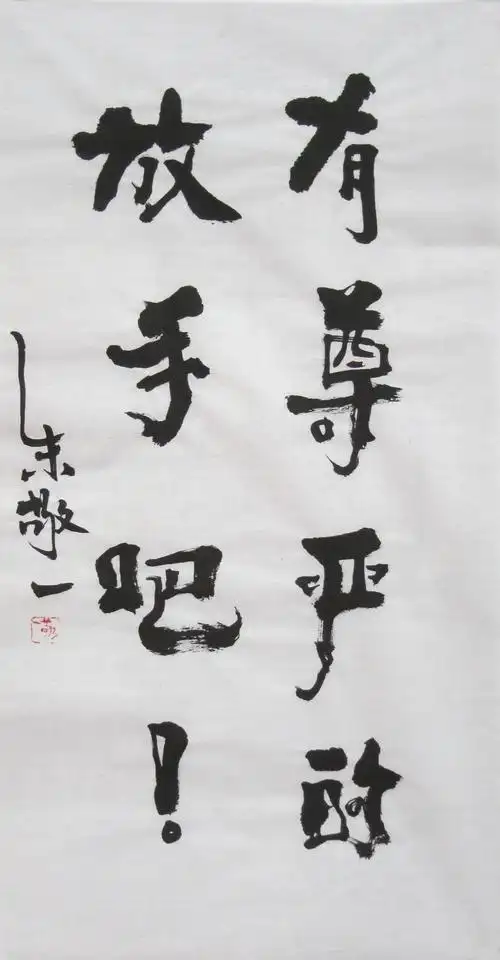 有尊严的
放手吧！
朱敬一